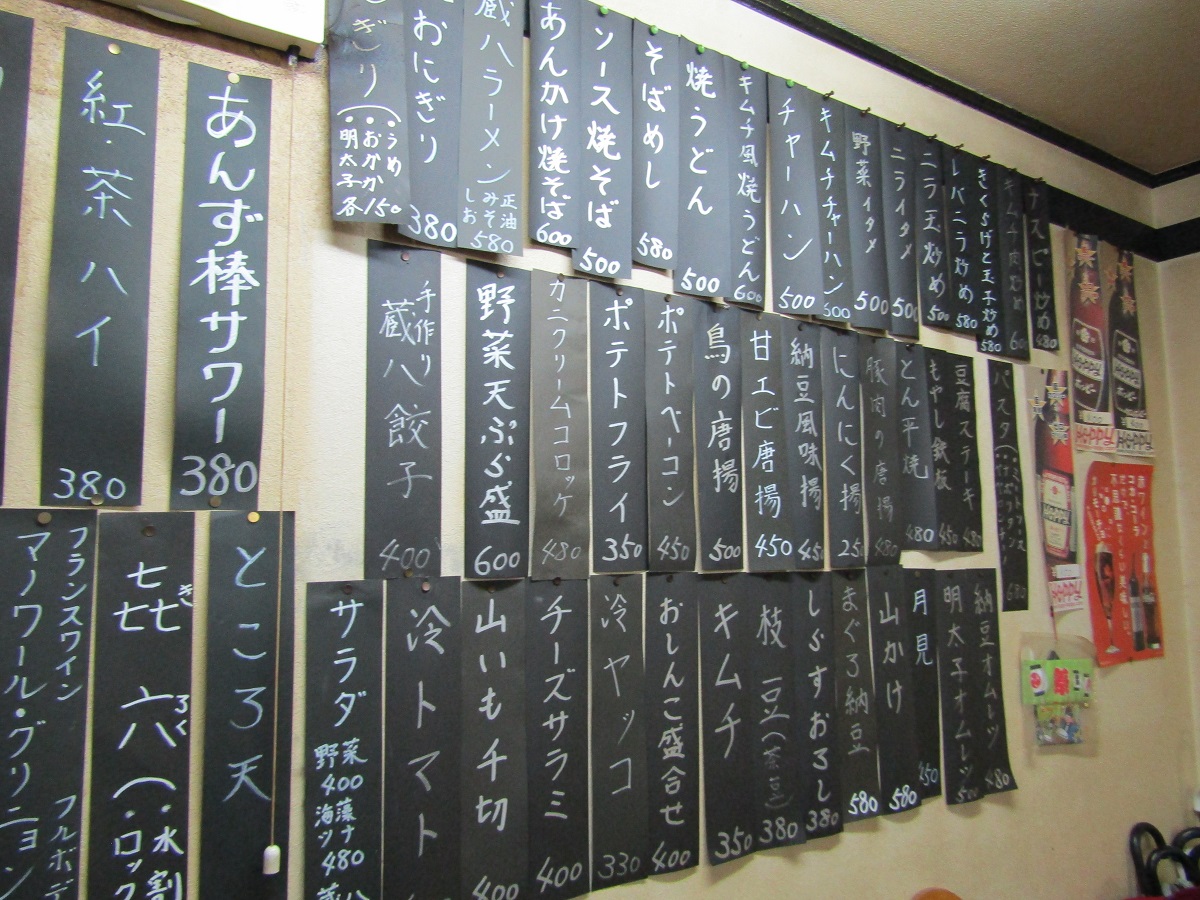 紅・茶ハイ
380
あんず棒サワー
380
ぎり(・うめ
・おかか
明太子
各150
おにぎり
380
蔵ハラーメン
正油
みそ
しお
580
あんかけ焼そば
600
ソース焼そば
500
そばめし
580
焼うどん
500
キムチ風焼うどん
600
チャーハン
500
キムチチャーハン
500
野菜イタメ
500
ニライタメ
500
ニラ玉炒め
500
レバニラ炒め
580
きくらげと玉子炒め
580
キムチ肉炒め
ナスピー炒め
480
手作り
蔵八餃子
400
野菜天ぷら盛
600
カニクリームコロッケ
480
ポテトフライ
350
ポテトベーコン
450
鳥の唐揚
500
甘エビ唐揚
450
納豆風味揚
450
にんにく揚
250
豚肉の唐揚
480
とん平焼
480
もやし鉄板
450
豆腐ステーキ
480
パスタ
680
フランスワイン
マノワール・グリニョン
フルボデ
㐂六(・水割
きろく
・ロック
ところ天
サラダ
野菜
400
海藻
ツナ
480
蔵八
冷トマト
山いも千切
400
チーズサラミ
400
冷ヤッコ
330
おしんこ盛合せ
400
キムチ
350
枝豆(茶豆)
380
しらすおろし
380
まぐろ納豆
580
山かけ
580
月見
450
明太子オムレツ
500
納豆オムレツ
480
HOPPY
ホッピー
HOPPY
赤ワイン